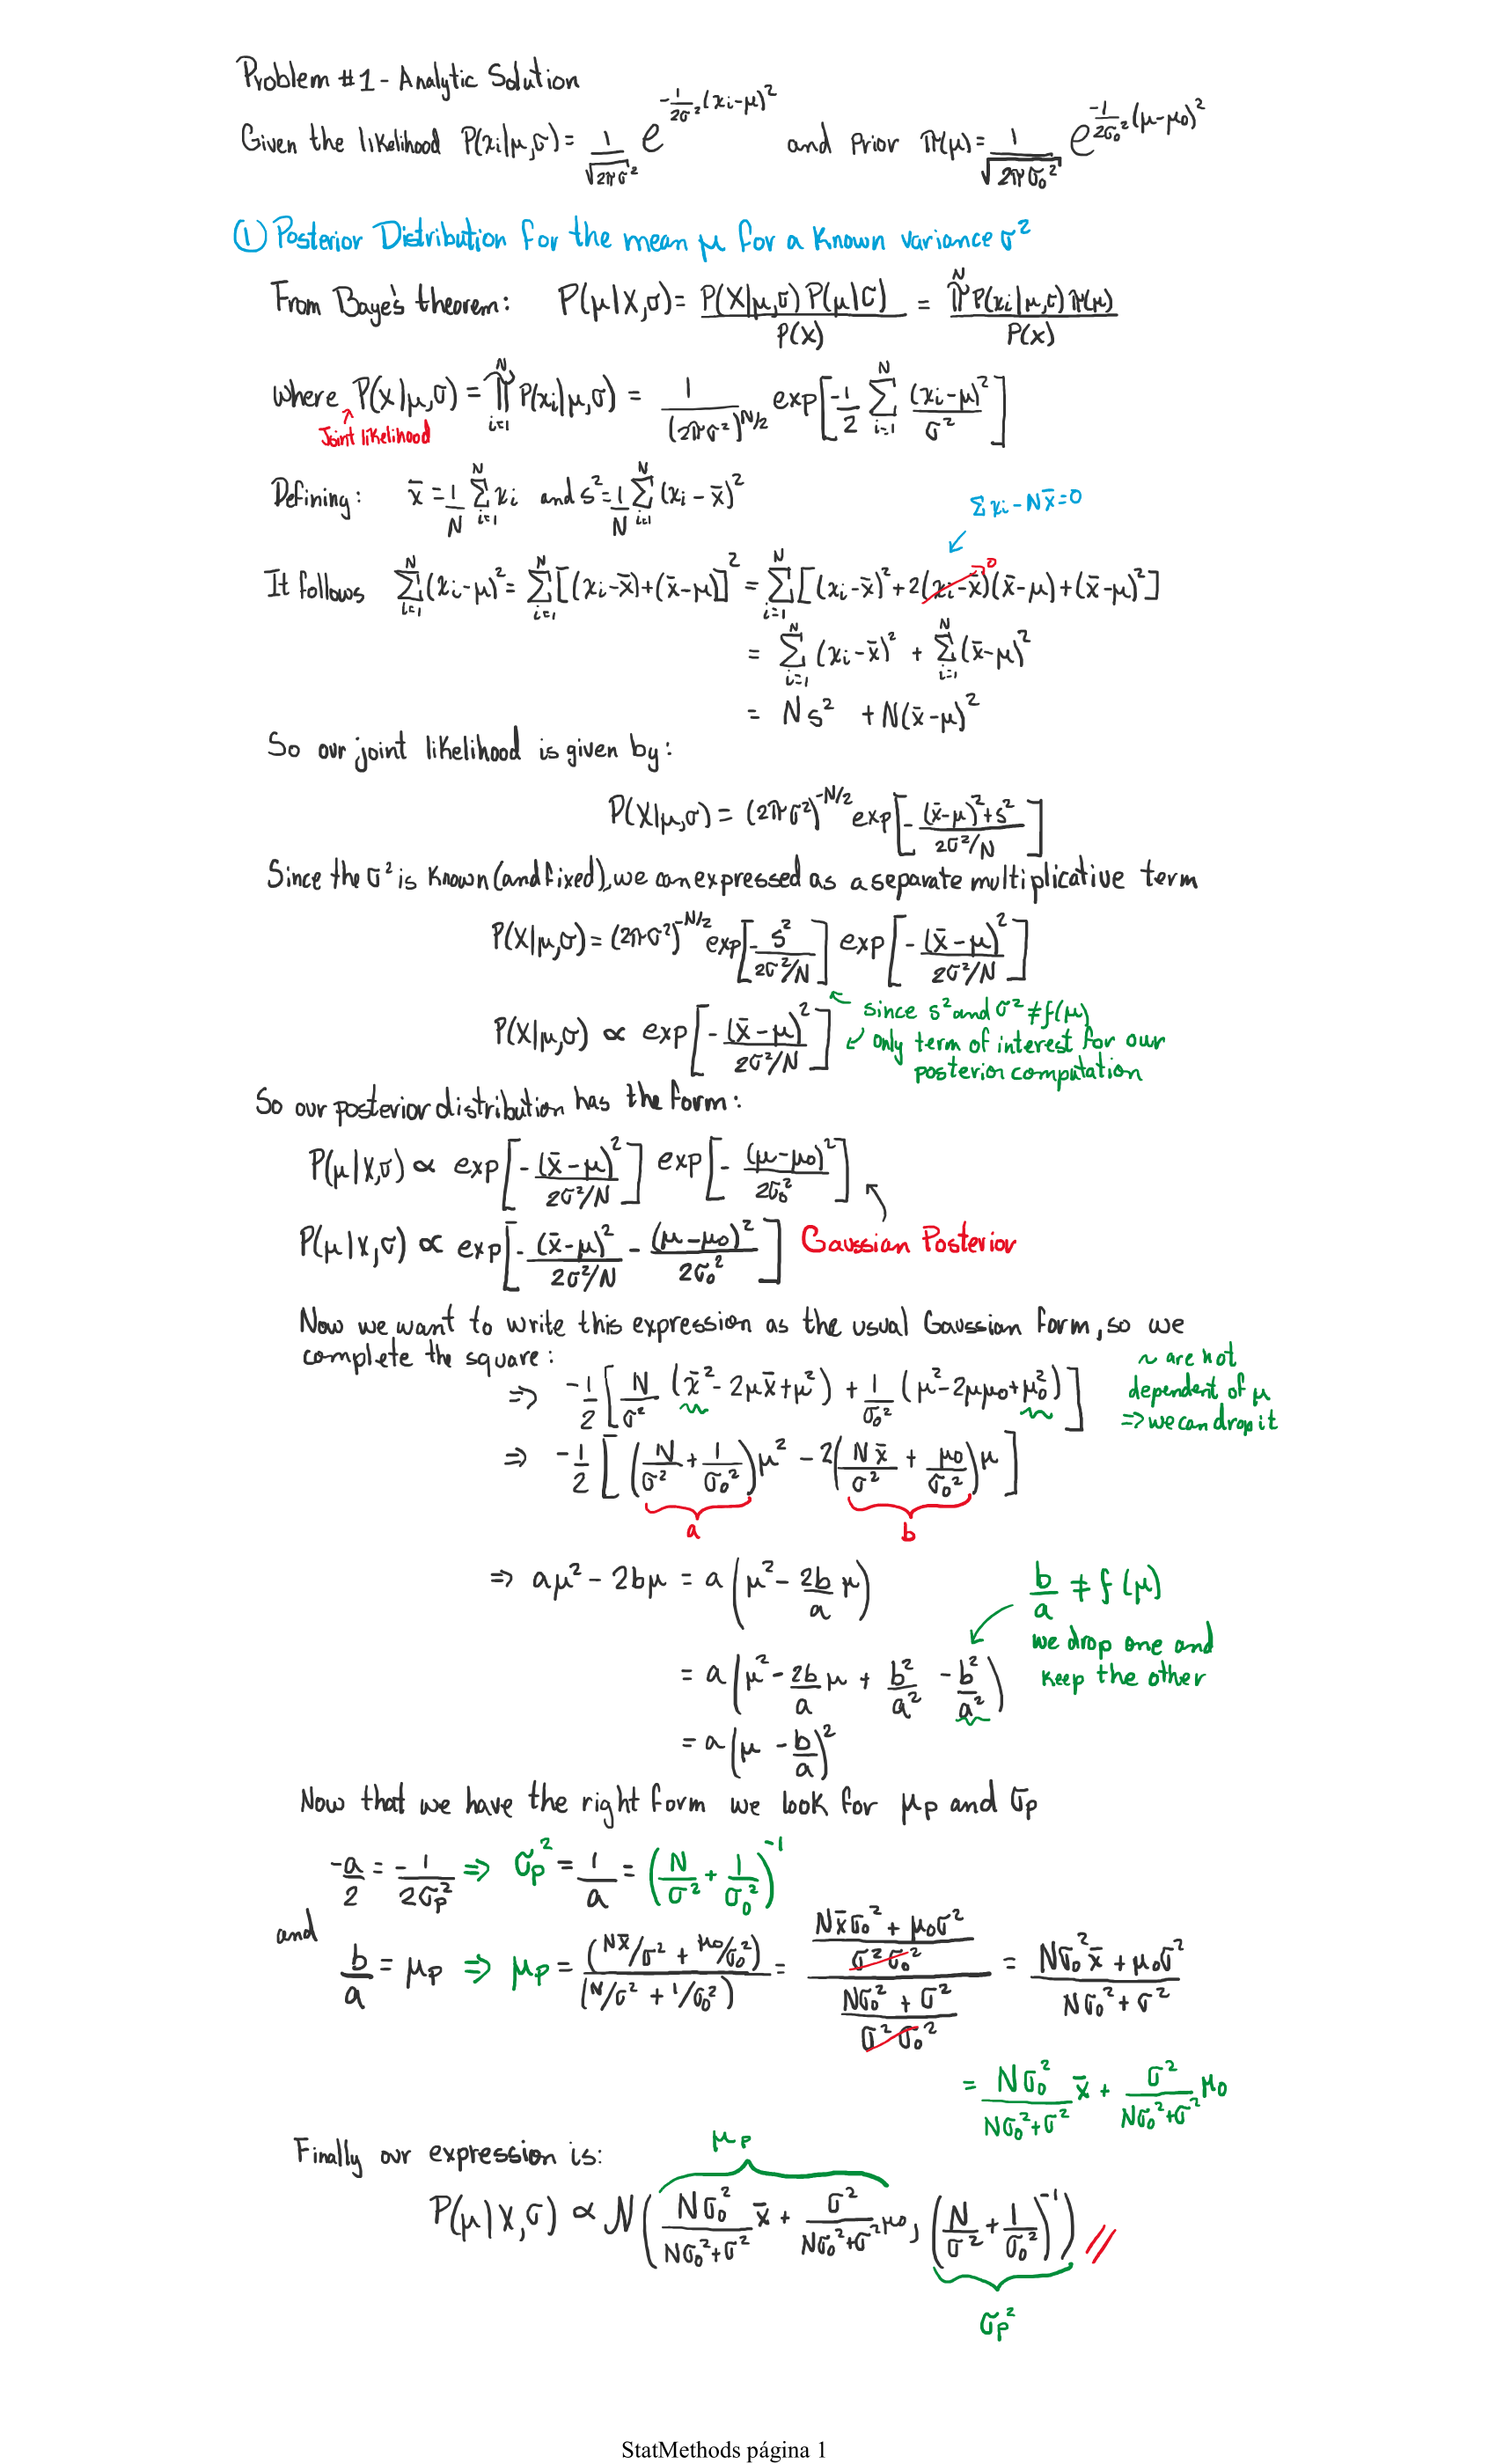 Problem #1 - Analytic Solution
Given the likelihood P(xi|μ,σ) = 1/√(2πσ²) e^(-1/2σ² (xi-μ)²) and Prior π(μ) = 1/√(2πσ0²) e^(-1/2σ0² (μ-μ0)²)
① Posterior Distribution for the mean μ for a known variance σ²
From Baye's theorem: P(μ|X,σ) = P(X|μ,σ) P(μ|σ) / P(X) = ∏^N P(xi|μ,σ) π(μ) / P(X)
where P(X|μ,σ) = ∏_{i=1}^N P(xi|μ,σ) = 1/(2πσ²)^(N/2) exp[-1/2 Σ_{i=1}^N (xi-μ)²/σ²]
Joint likelihood
Defining: x̄ = 1/N Σ_{i=1}^N xi and s² = 1/N Σ_{i=1}^N (xi - x̄)²
Σxi - Nx̄ = 0
It follows Σ_{i=1}^N (xi-μ)² = Σ_{i=1}^N [(xi-x̄)+(x̄-μ)]² = Σ_{i=1}^N [(xi-x̄)² + 2(xi-x̄)(x̄-μ) + (x̄-μ)²]
0
= Σ_{i=1}^N (xi-x̄)² + Σ_{i=1}^N (x̄-μ)²
= N s² + N(x̄-μ)²
So our joint likelihood is given by:
P(X|μ,σ) = (2πσ²)^(-N/2) exp[- ((x̄-μ)²+s²)/(2σ²/N)]
Since the σ² is known (and fixed), we can expressed as a separate multiplicative term
P(X|μ,σ) = (2πσ²)^(-N/2) exp[- s²/(2σ²/N)] exp[- (x̄-μ)²/(2σ²/N)]
since s² and σ² ≠ f(μ)
P(X|μ,σ) ∝ exp[- (x̄-μ)²/(2σ²/N)]
only term of interest for our
posterior computation
So our posterior distribution has the form:
P(μ|X,σ) ∝ exp[- (x̄-μ)²/(2σ²/N)] exp[- (μ-μ0)²/(2σ0²)]
P(μ|X,σ) ∝ exp[- (x̄-μ)²/(2σ²/N) - (μ-μ0)²/(2σ0²)] Gaussian Posterior
Now we want to write this expression as the usual Gaussian form, so we
complete the square:
⇒ -1/2 [N/σ² (x̄² - 2μx̄ + μ²) + 1/σ0² (μ² - 2μμ0 + μ0²)]
~ are not
dependent of μ
⇒ we can drop it
⇒ -1/2 [(N/σ² + 1/σ0²)μ² - 2(Nx̄/σ² + μ0/σ0²)μ]
a b
⇒ aμ² - 2bμ = a(μ² - 2b/a μ)
b/a ≠ f(μ)
we drop one and
keep the other
= a(μ² - 2b/a μ + b²/a² - b²/a²)
= a(μ - b/a)²
Now that we have the right form we look for μp and σp
-a/2 = -1/(2σp²) ⇒ σp² = 1/a = (N/σ² + 1/σ0²)^-1
and
b/a = μp ⇒ μp = (Nx̄/σ² + μ0/σ0²)/(N/σ² + 1/σ0²) = ((Nx̄σ0² + μ0σ²)/(σ²σ0²))/((Nσ0² + σ²)/(σ²σ0²)) = (Nσ0²x̄ + μ0σ²)/(Nσ0² + σ²)
= Nσ0²/(Nσ0²+σ²) x̄ + σ²/(Nσ0²+σ²) μ0
Finally our expression is:
μp
P(μ|X,σ) ∝ N(Nσ0²/(Nσ0²+σ²) x̄ + σ²/(Nσ0²+σ²) μ0, (N/σ² + 1/σ0²)^-1) //
σp²
StatMethods página 1